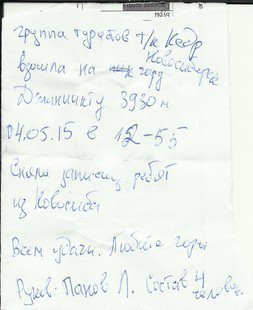 группа туристов т/к Кедр
Новосибирск
взошла на гору
3950 м
04.05.15 в 15-55
Сняли записку ребят
из Новосиба
Всем удачи. Любите горы
Руков. Панов Л. Состав 4
человек